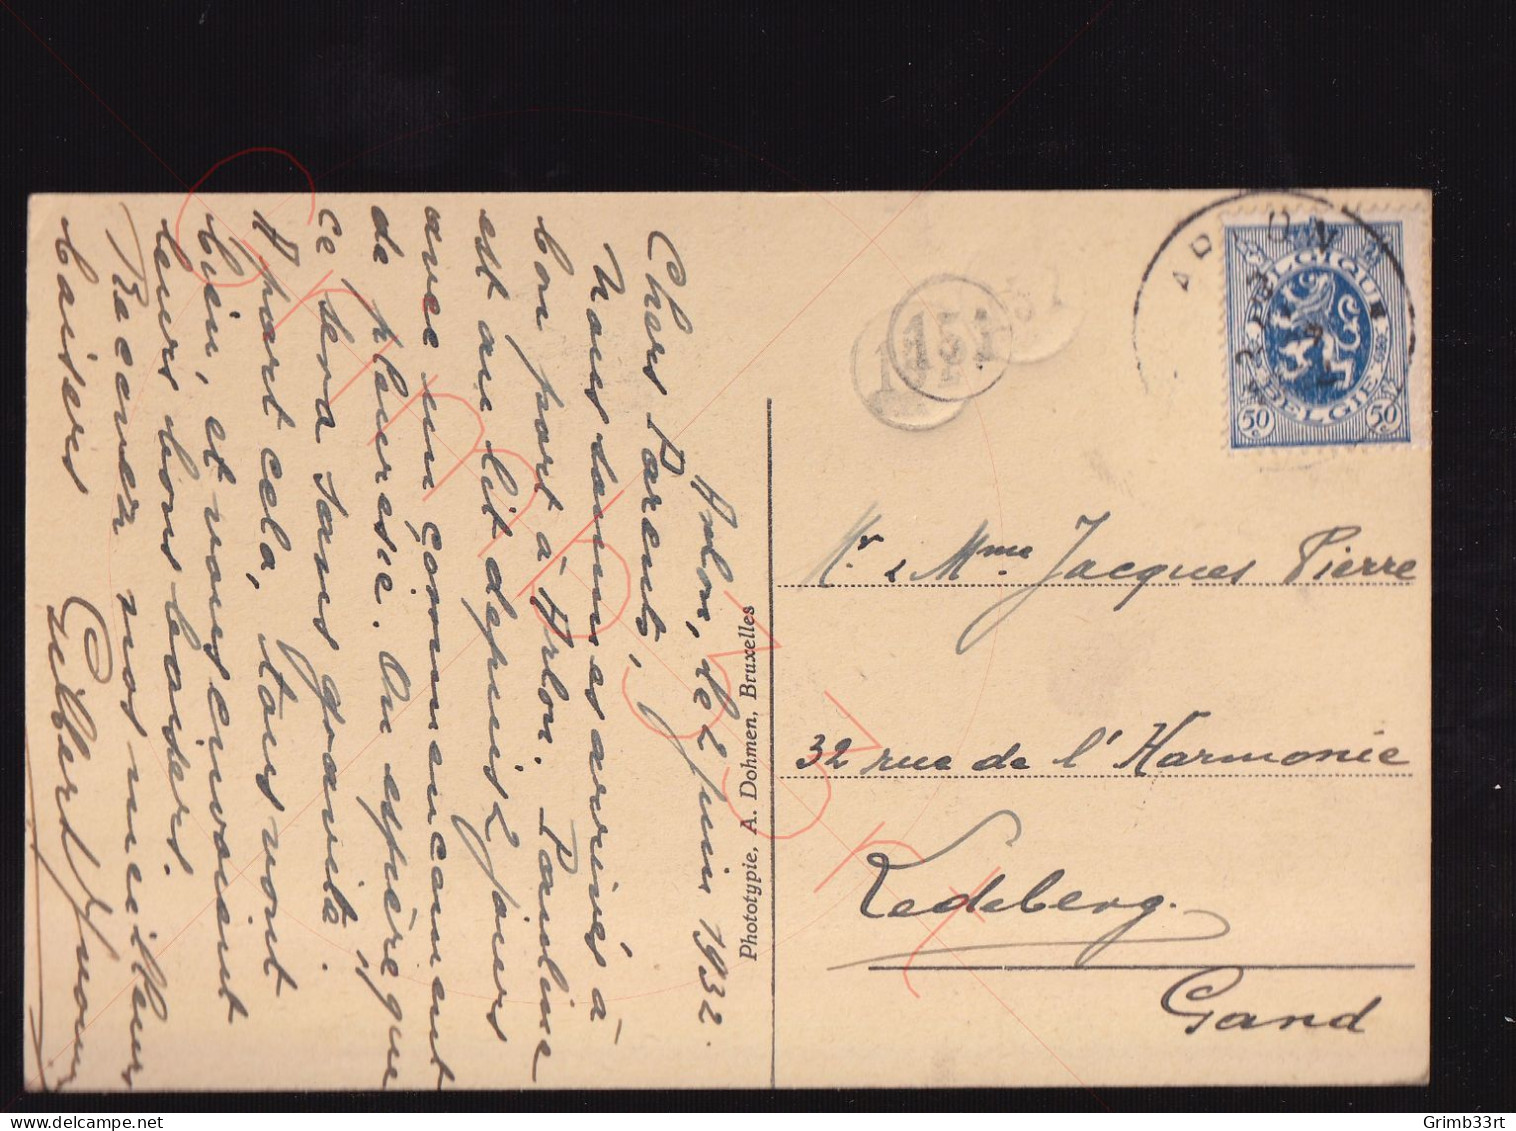 Arlon, le 2 Juin 1932.
Chers Parents,
Nous sommes arrivés à
bon port à Arlon. Pauline
est au lit depuis 2 jours
avec un commencement
de pleuresie. On espère que
ce sera sans gravité.
A part cela, tous vont
bien, et vous envoient
leurs bons baisers.
Recevez nos meilleurs
baisers
Gilbert Yvonne
Phototypie, A. Dohmen, Bruxelles
ARLON
BELGIQUE
BELGIE
50c
50c
1521
151
Mr & Mme Jacques Pierre
32 rue de l'Harmonie
Ledeberg.
Gand
Grimb33rt
Grimb33rt